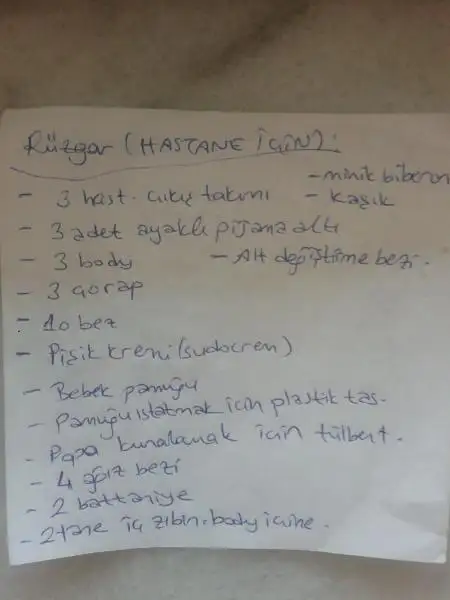 Rüzgar (HASTANE İÇİN):
- minik biberon
- 3 hast. çıkış takımı
- Kaşık
- 3 adet ayaklı pijama altı
- 3 body
- Alt değiştirme bezi.
- 3 çorap
- 10 bez
- Pişik kremi (sudocrem)
- Bebek pamuğu
- Pamuğu ıslatmak için plastik tas.
- Popo kurulamak için tülbent.
- 4 ağız bezi
- 2 battaniye
- 2 tane iç zıbın. body içine.